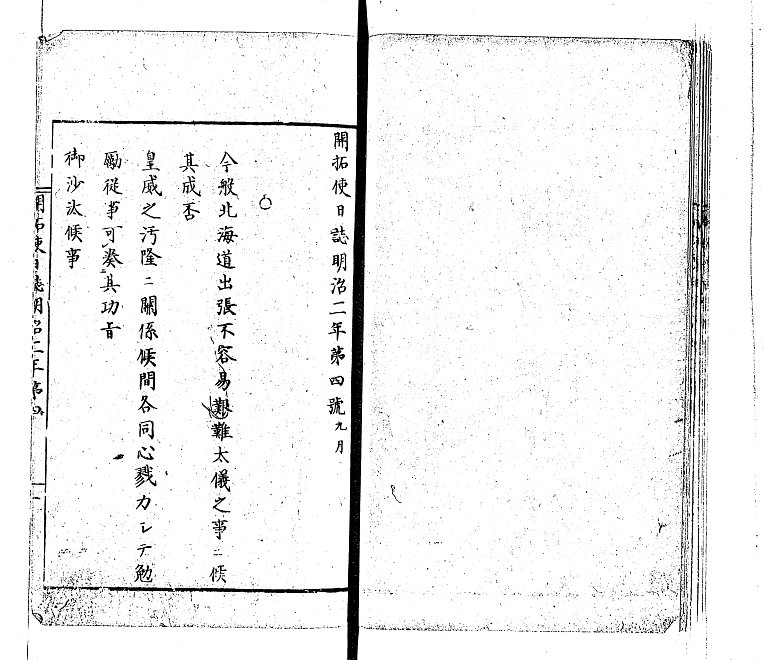 開拓使日誌明治二年第四號九月
○
今般北海道出張不容易艱難太儀之事ニ候
其成否
皇威之汚隆ニ關係候間各同心戮力シテ勉
勵從事可奏其功旨
御沙汰候事
開拓使日誌明治二年第四
一